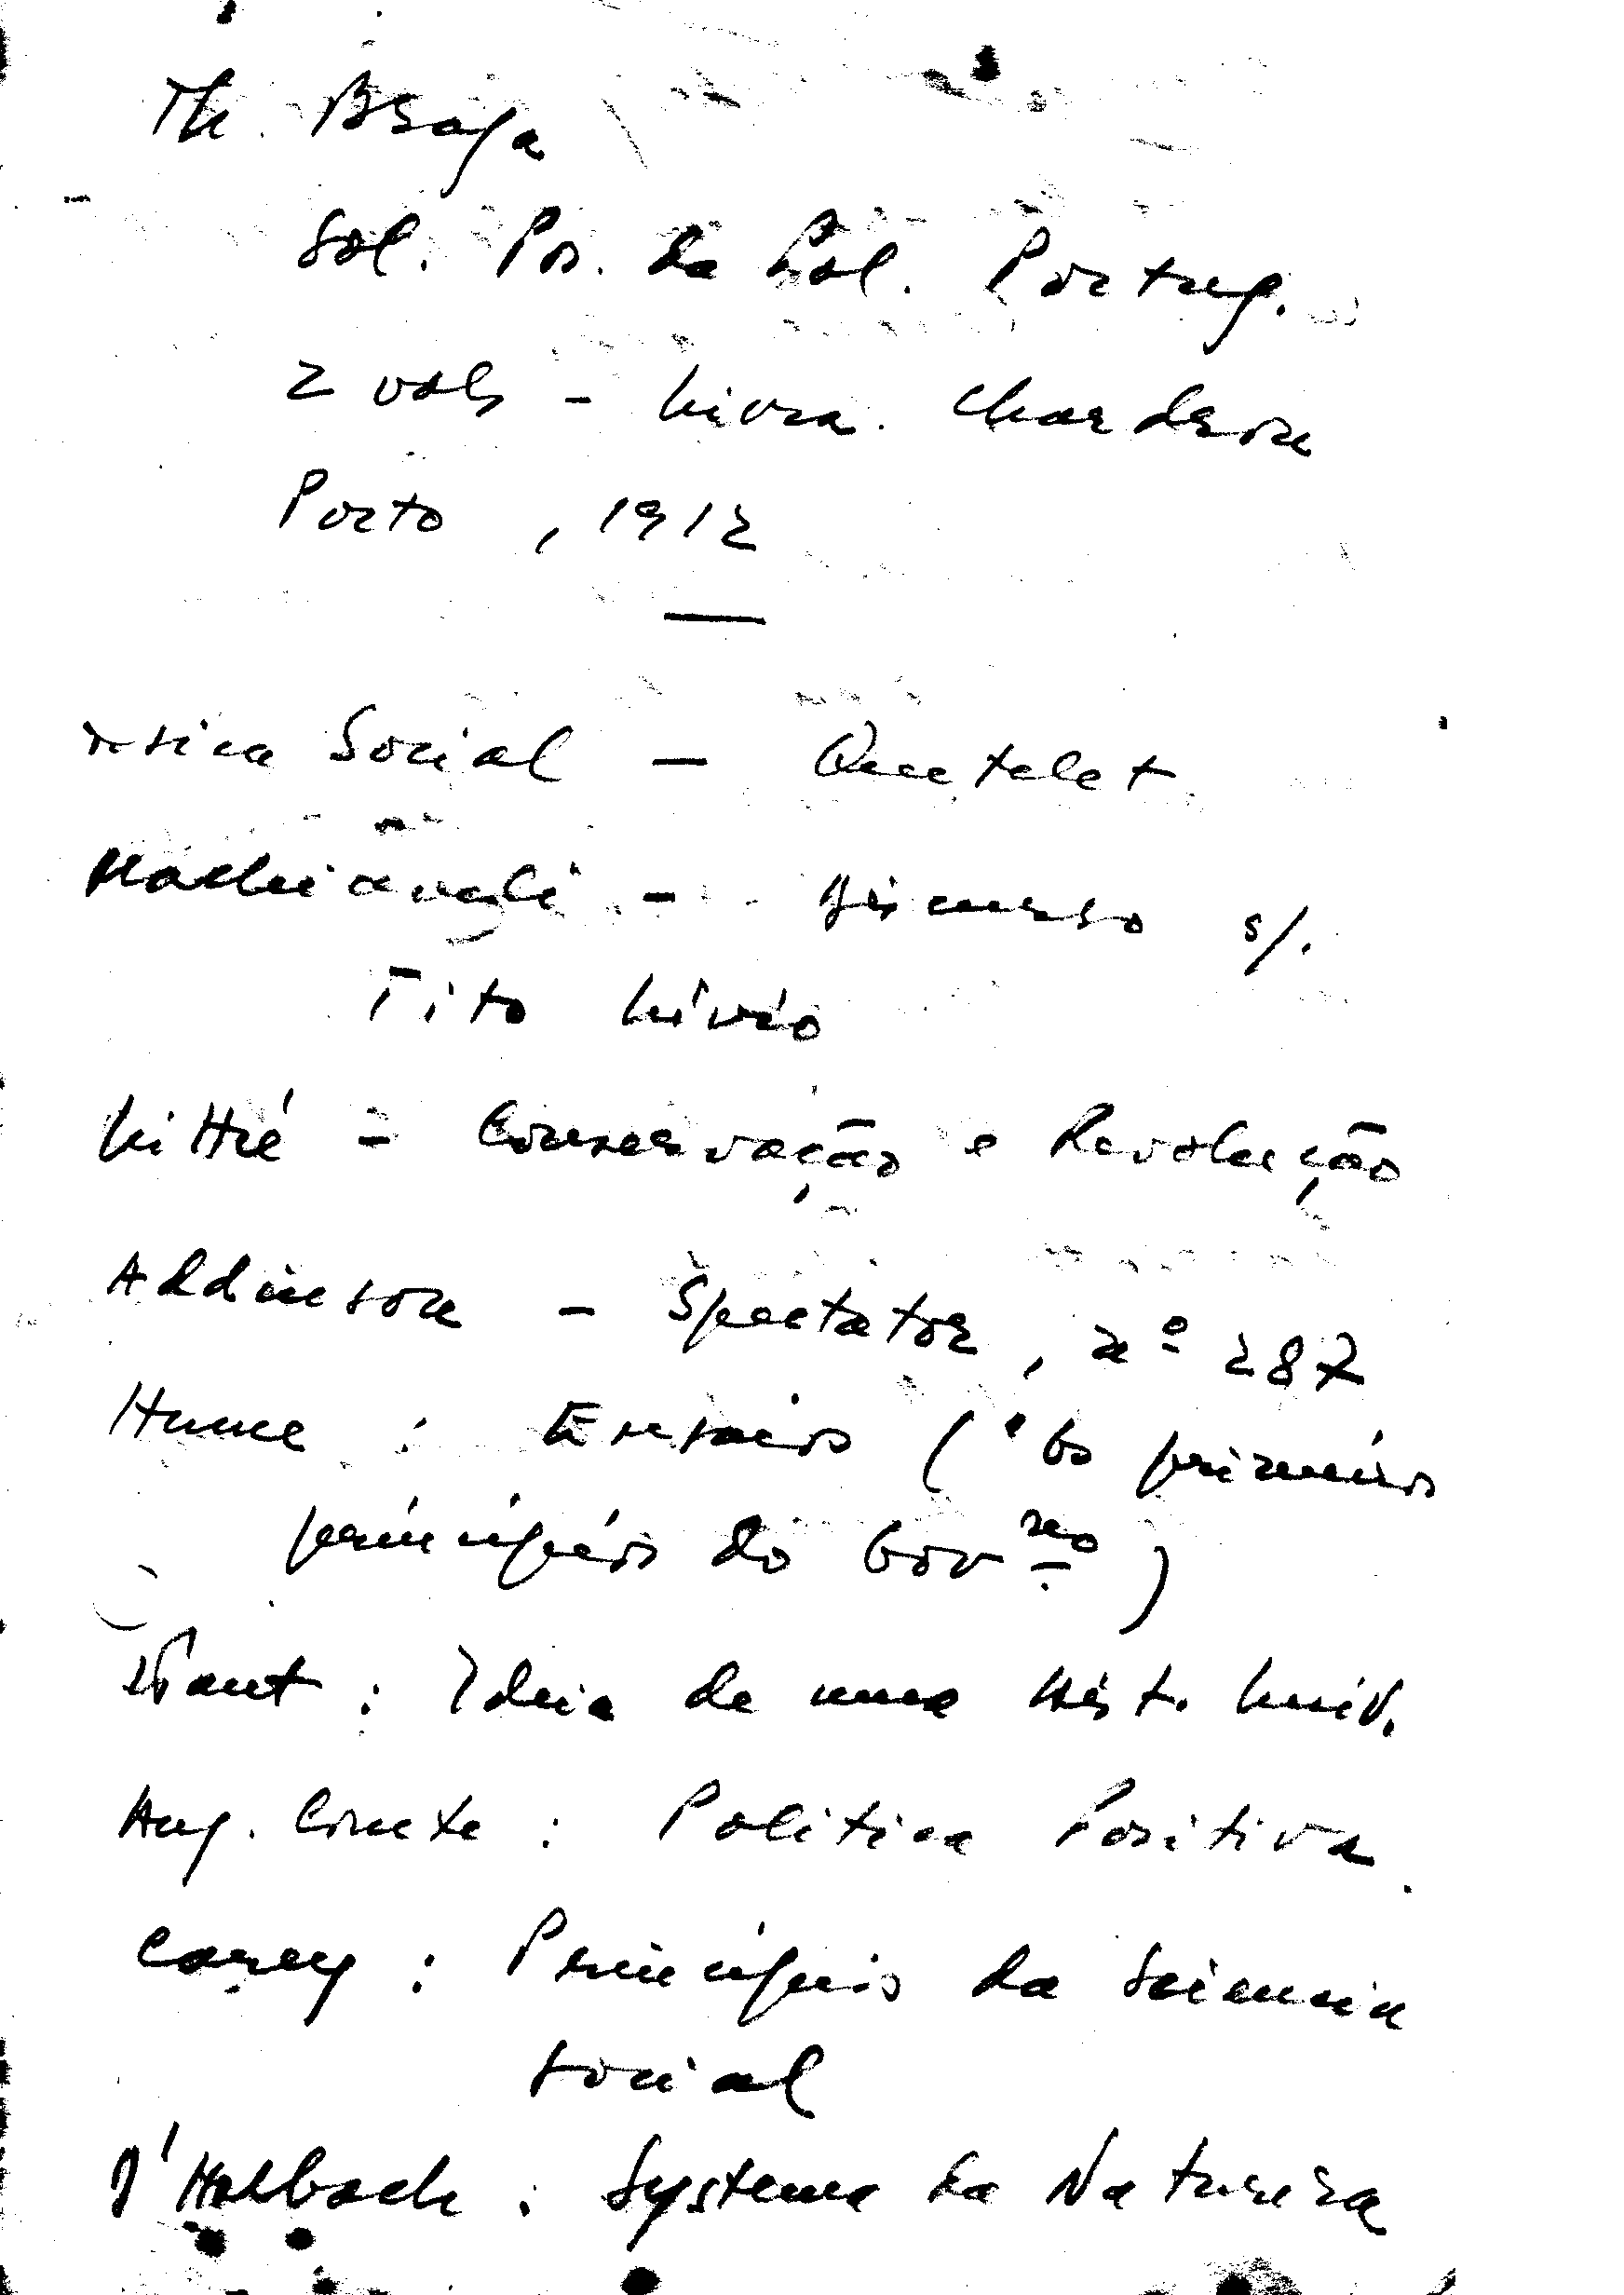 Th. Braga
Sol. Pos. da Pol. Portug.
2 vols - Livra. Chardron
Porto, 1912
Social - Quetelet
Machiaveli - Discurso s/.
Tito Lívio
Littré - Conservação e Revolução
Addinson - Spectator, nº 287
Hume : Ensaios ( Os primeiros
princípios do Govno)
Kant : Ideia de uma Hist. Univ.
Aug. Comte : Politica Positiva.
Carey : Princípios da Sciencia
social
D'Holbach : Systema da Natureza